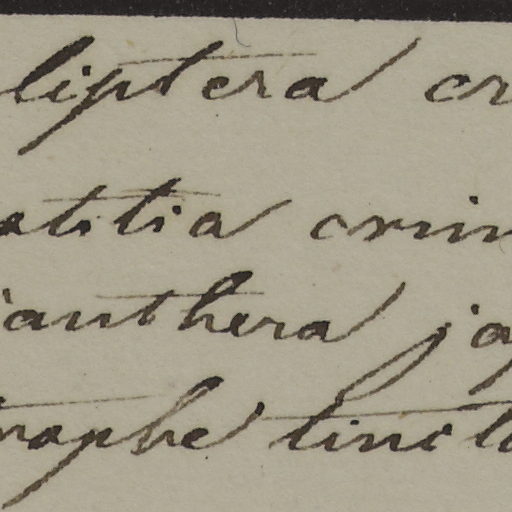 liptera cr
atitia crin
ianthera ja
raphe tincto